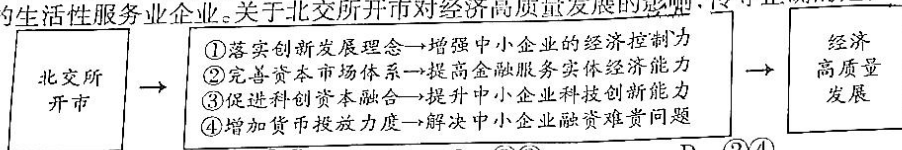 的生活性服务业企业。关于北交所开市对经济高质量发展的影响,
北交所
开市
→
①落实创新发展理念→增强中小企业的经济控制力
②完善资本市场体系→提高金融服务实体经济能力
③促进科创资本融合→提升中小企业科技创新能力
④增加货币投放力度→解决中小企业融资难贵问题
→
经济
高质量
发展
D ②④